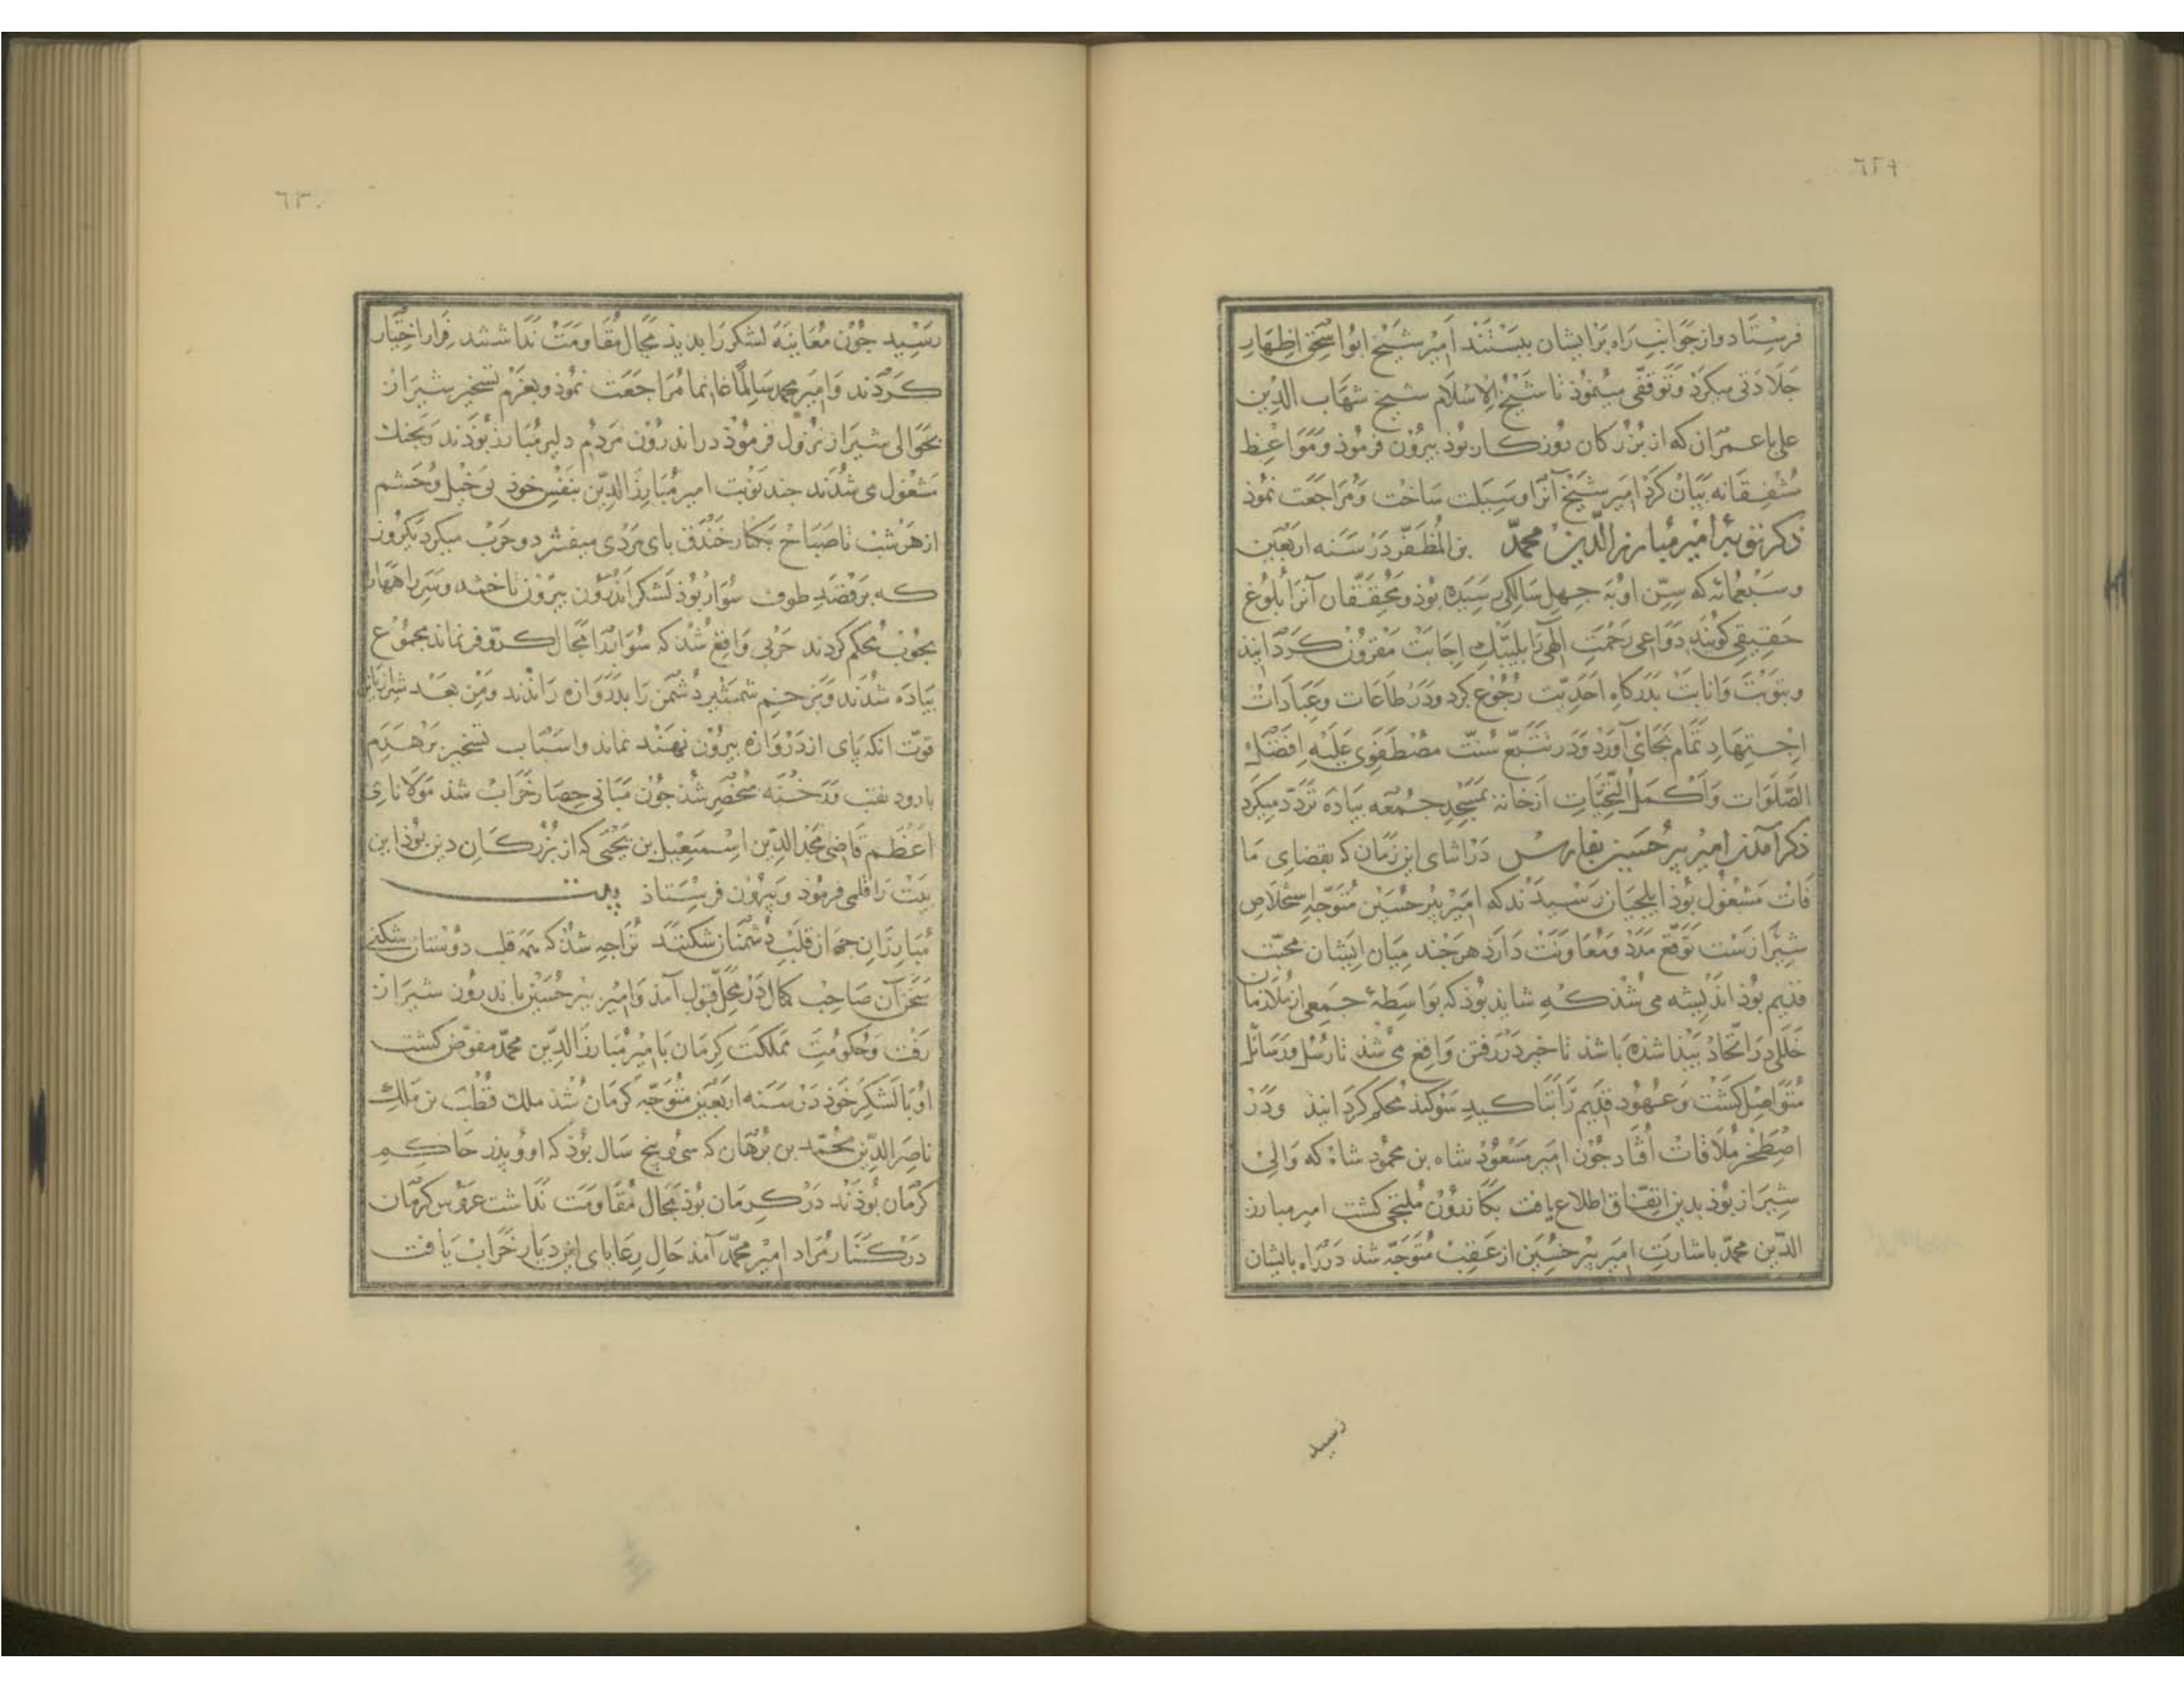 ٦٢٩
فرستاد و از جوانب راه بر ایشان ببستند امیر شیخ ابو اسحق اظهار
جلادتی میکرد و توقفی مینموذ تا شیخ الاسلام شیخ شهاب الدین
علی با عمران که از بزرکان روزکار بوذ بیرون فرموذ و مواعظ
مشفقانه بیان کرد امیر شیخ آنرا وسیلت ساخت و مراجعت نموذ
ذکر توبۀ امیر مبارز الدین محمد بن المظفر در سنه اربعین
و سبعمائه که سن او به جهل سالکی رسیده بوذ و محققان آنرا بلوغ
حقیقی کویند دواعی رحمت الهی را بلبیک اجابت مقرون کردانیذ
و بتوبت و انابت بدرکاه احدیت رجوع کرد و در طاعات و عبادات
اجتهاد تمام بجای آورد و در تتبع سنت مصطفوی علیه افضل
الصلوات و اکمل التحیات از خانه بمسجد جمعه بیاده تردد میکرد
ذکر آمدن امیر بیر حسین بفارس در اثنای این زمان که بقضای ما
فات مشغول بوذ ایلجیان رسیدند که امیر بیر حسین متوجه استخلاص
شیرازست توقع مدد و معاونت دارد هرجند میان ایشان محبت
قدیم بوذ اندیشه می شذ که شاید بوذ که بواسطۀ جمعی از ملازمان
خللی در اتحاد بیذا شذه باشد تاخیر در رفتن واقع می شذ تا رسل و رسائل
متواصل کشت و عهود قدیم را بتاکید سوکند محکم کردانیذ و در
اصطخر ملاقات افتاد جون امیر مسعود شاه بن محمود شاه که والی
شیراز بوذ بدین اتفاق اطلاع یافت بکازرون ملتجی کشت امیر مبارز
الدین محمد باشارت امیر بیر حسین از عقب متوجه شد در راه بایشان
رسید
٦٣٠
رسید جون معاینه لشکر را بدیذ مجال مقاومت نداشتند فرار اختیار
کردند و امیر محمد سالما غانما مراجعت نموذ و بعزم تسخیر شیراز
بحوالی شیراز نزول فرموذ در اندرون مردم دلیر مبارز بوذند و بجنك
مشغول می شدند جند نوبت امیر مبارز الدین بنفس خوذ بی خیل و حشم
از هر شب تا صباح بکنار خندق بای مردی میفشرد و حرب میکرد یکروز
که بر قصد طوف سوار بوذ لشکر اندرون بیرون تاختند و سر راهها را
بجوب محکم کردند حربی واقع شد که سوار را مجال کر و فر نماند مجموع
بیاده شدند و بزخم شمشیر دشمن را بدروازه راندند و من بعد
قوت انکه پای از دروازه بیرون نهند نماند و اسباب تسخیر بر هدم
بارو و نقب و رخنه منحصر شذ جون مبانی حصار خراب شذ مولانای
اعظم قاضی مجد الدین اسمعیل بن یحیی که از بزرکان دین بوذ این
بیت را قلمی فرموذ و بیرون فرستاذ بیت
مبارزان جهان قلب دشمنان شکنند ترا جه شذ که همه قلب دوستان شکنی
سخن آن صاحب کمال در محل قبول آمذ و امیر بیر حسین باندرون شیراز
رفت و حکومت مملکت کرمان بامیر مبارز الدین محمد مفوض کشت
او با لشکر خوذ در سنه اربعین متوجه کرمان شذ ملك قطب بن ملك
ناصر الدین محمد بن برهان که سی و پنج سال بوذ که او و پذر حاکم
کرمان بوذند در کرمان بوذ مجال مقاومت نداشت عروس کرمان
در کنار مراد امیر محمد آمذ حال رعایای این دیار خراب یافت